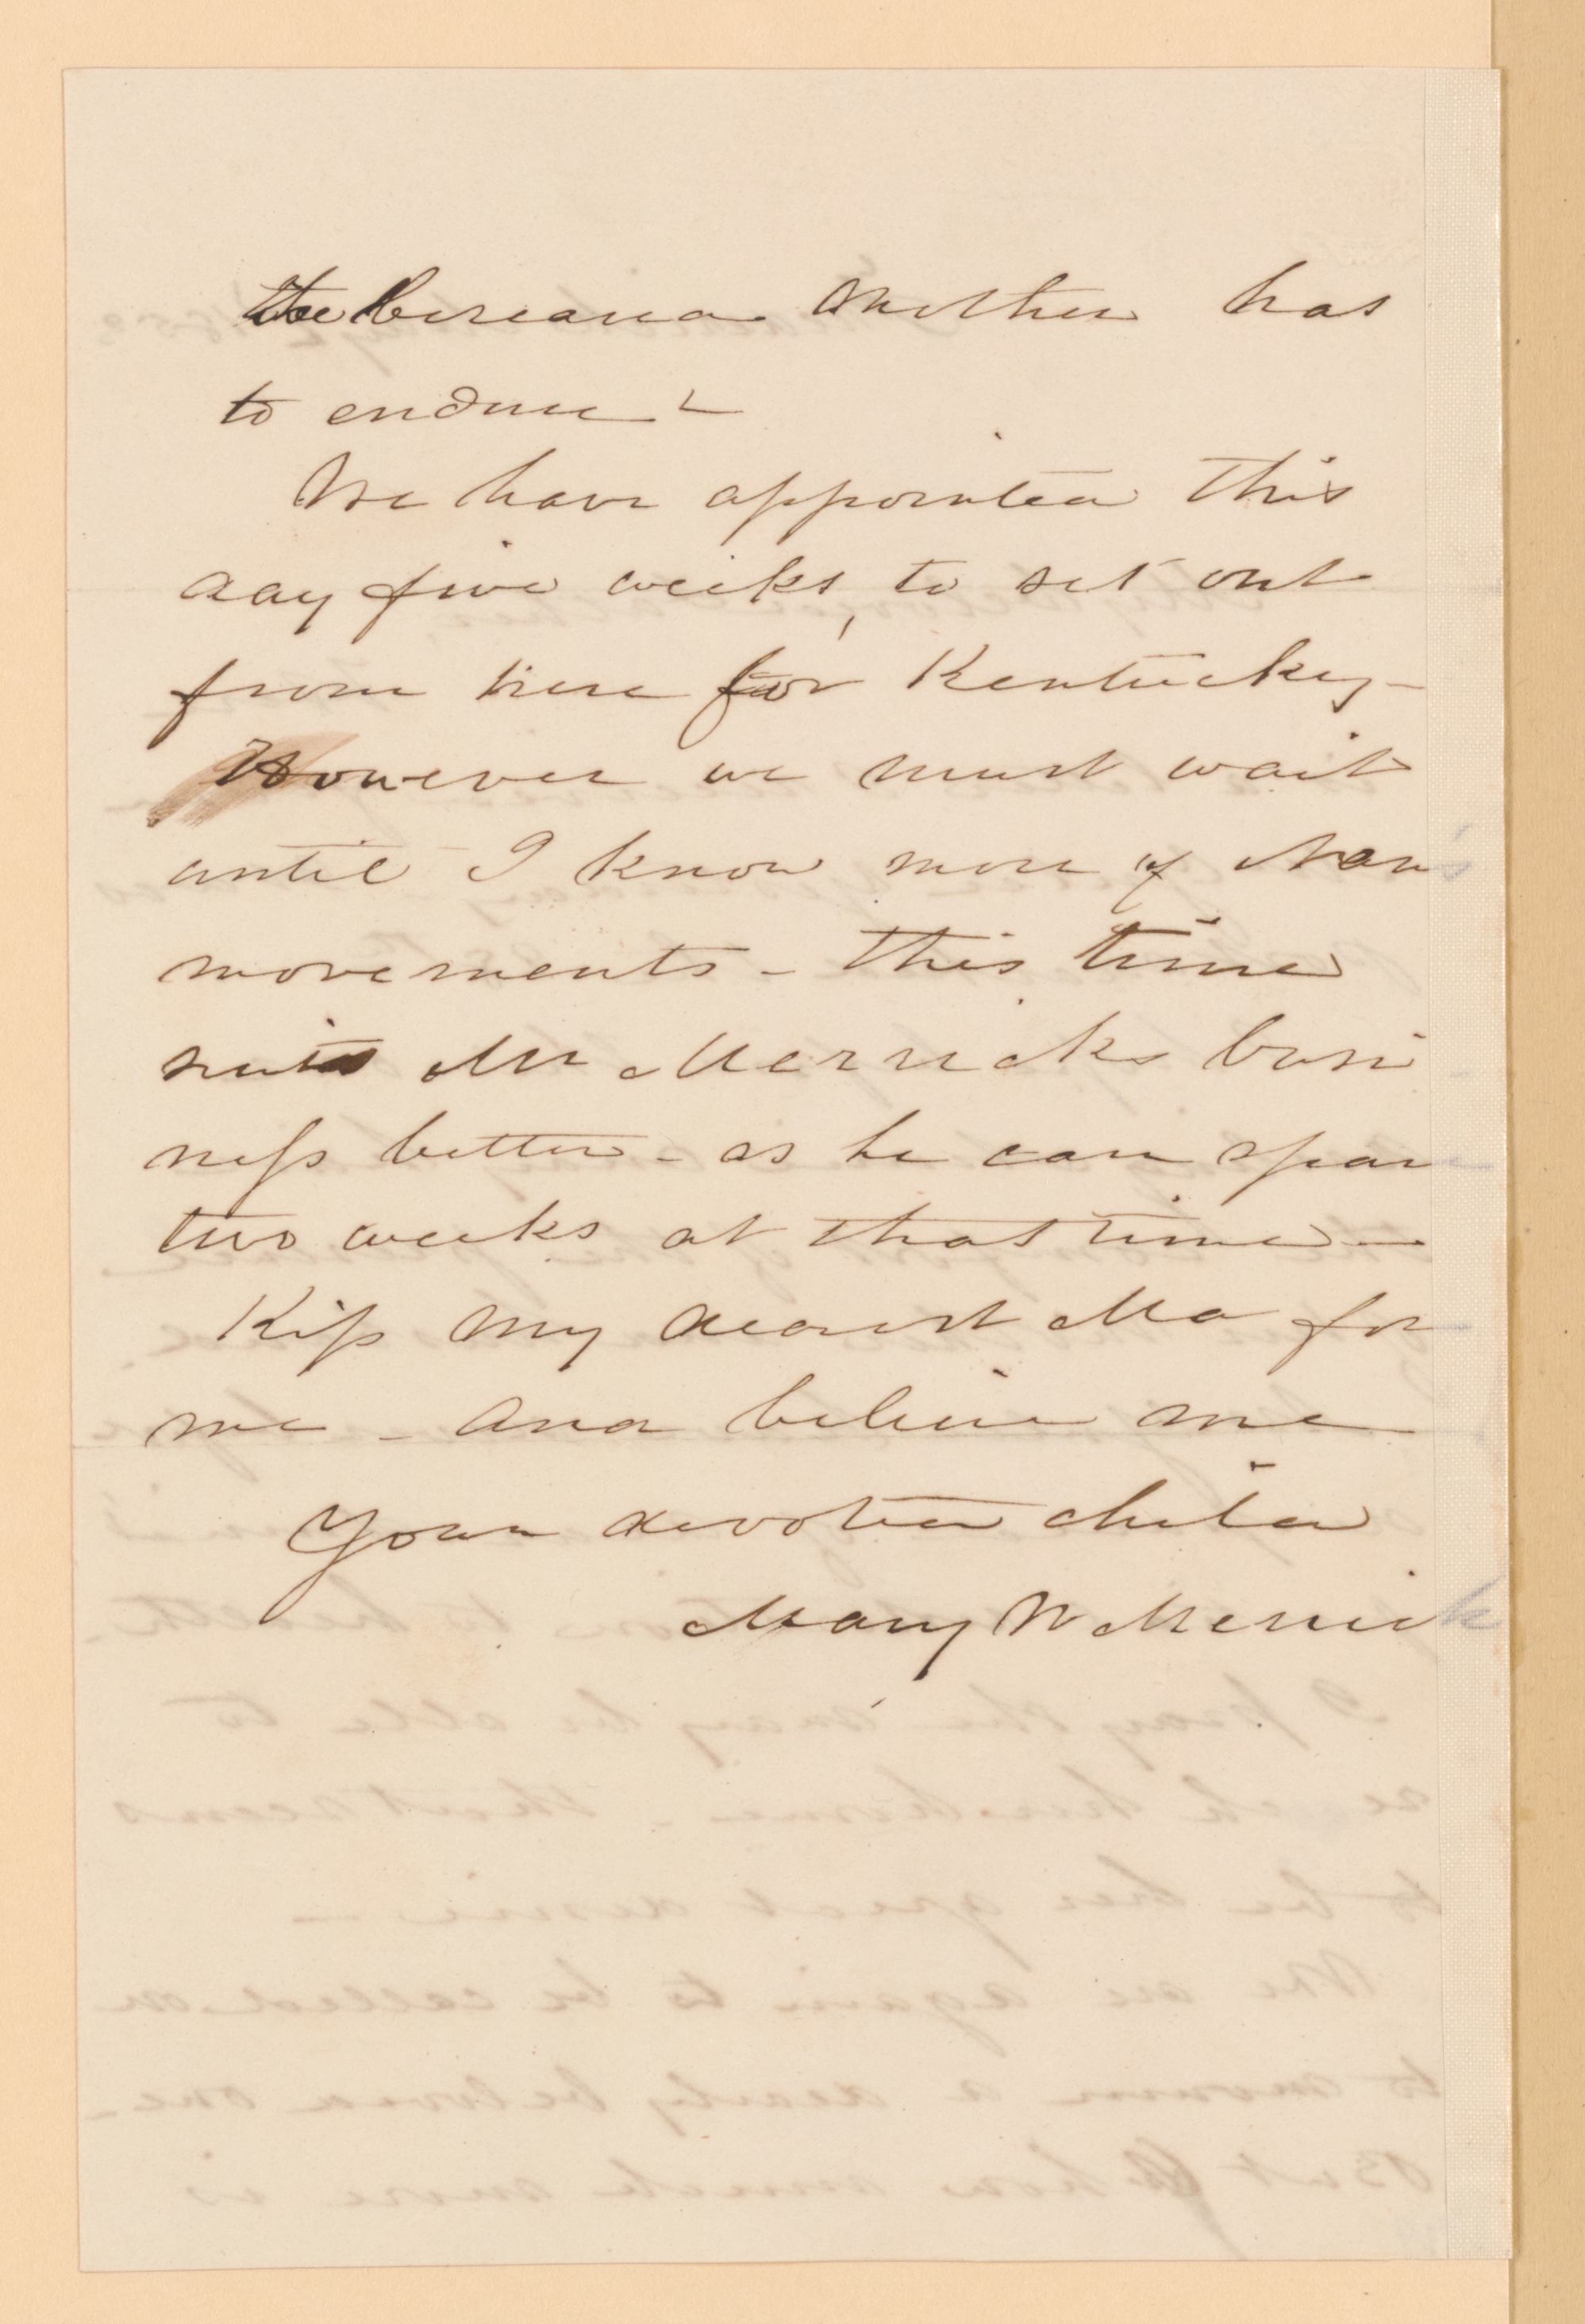 the bereaved Mother has
to endure -
We have appointed this
day five weeks, to set out
from here for Kentucky -
However we must wait
until I know more of Nan's
movements - this time
suits Mr Merricks busi
ness better - as he can spare
two weeks at that time -
Kiss my dearest Ma for
me - and believe me
Your devoted child
Mary W Merrick